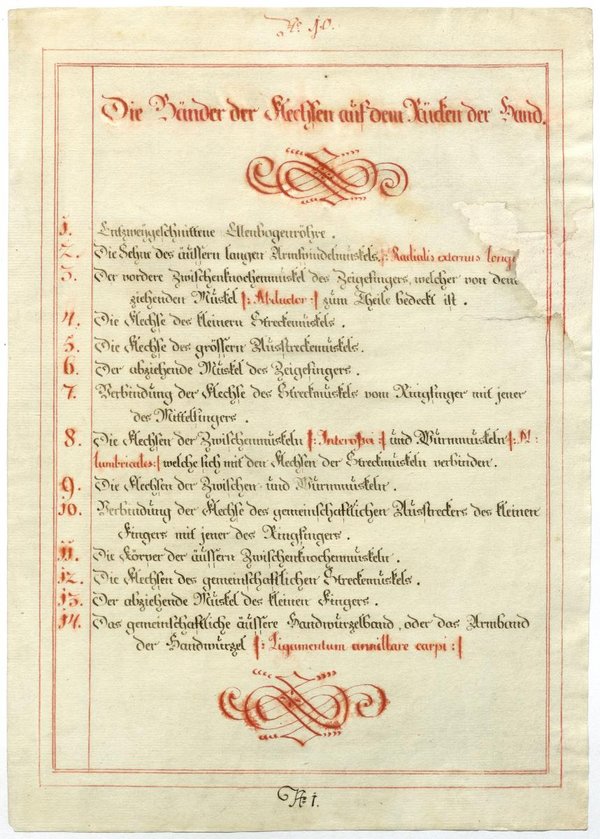 N: 10.
Die Bänder der Flechsen auf dem Rücken der Hand.
1. Entzweygeschnittene Ellenbogenröhre.
2. Die Sehne des äussern langen Armspindelmuskels, |: Radialis externus long
3. Der vordere Zwischenknochenmuskel des Zeigefingers, welcher von dem
ziehenden Muskel |: Abductor :| zum Theile bedeckt ist.
4. Die Flechse des kleinern Streckemuskels.
5. Die Flechse des grössern Ausstreckemuskels.
6. Der abziehende Muskel des Zeigefingers.
7. Verbindung der Flechse des Streckmuskels vom Ringfinger mit jener
des Mittelfingers.
8. Die Flechsen der Zwischenmuskeln |: Interossei :| und Wurmmuskeln |: M:
lumbricales :| welche sich mit den Flechsen der Streckmuskeln verbinden.
9. Die Flechsen der Zwischen- und Wurmmuskeln.
10. Verbindung der Flechse des gemeinschaftlichen Ausstreckers des kleinen
Fingers mit jener des Ringfingers.
11. Die Körper der äussern Zwischenknochenmuskeln.
12. Die Flechsen des gemeinschaftlichen Streckemuskels.
13. Der abziehende Muskel des kleinen Fingers.
14. Das gemeinschaftliche äussere Handwurzelband, oder das Armband
der Handwurzel |: Ligamentum armillare carpi :|
N: 1.